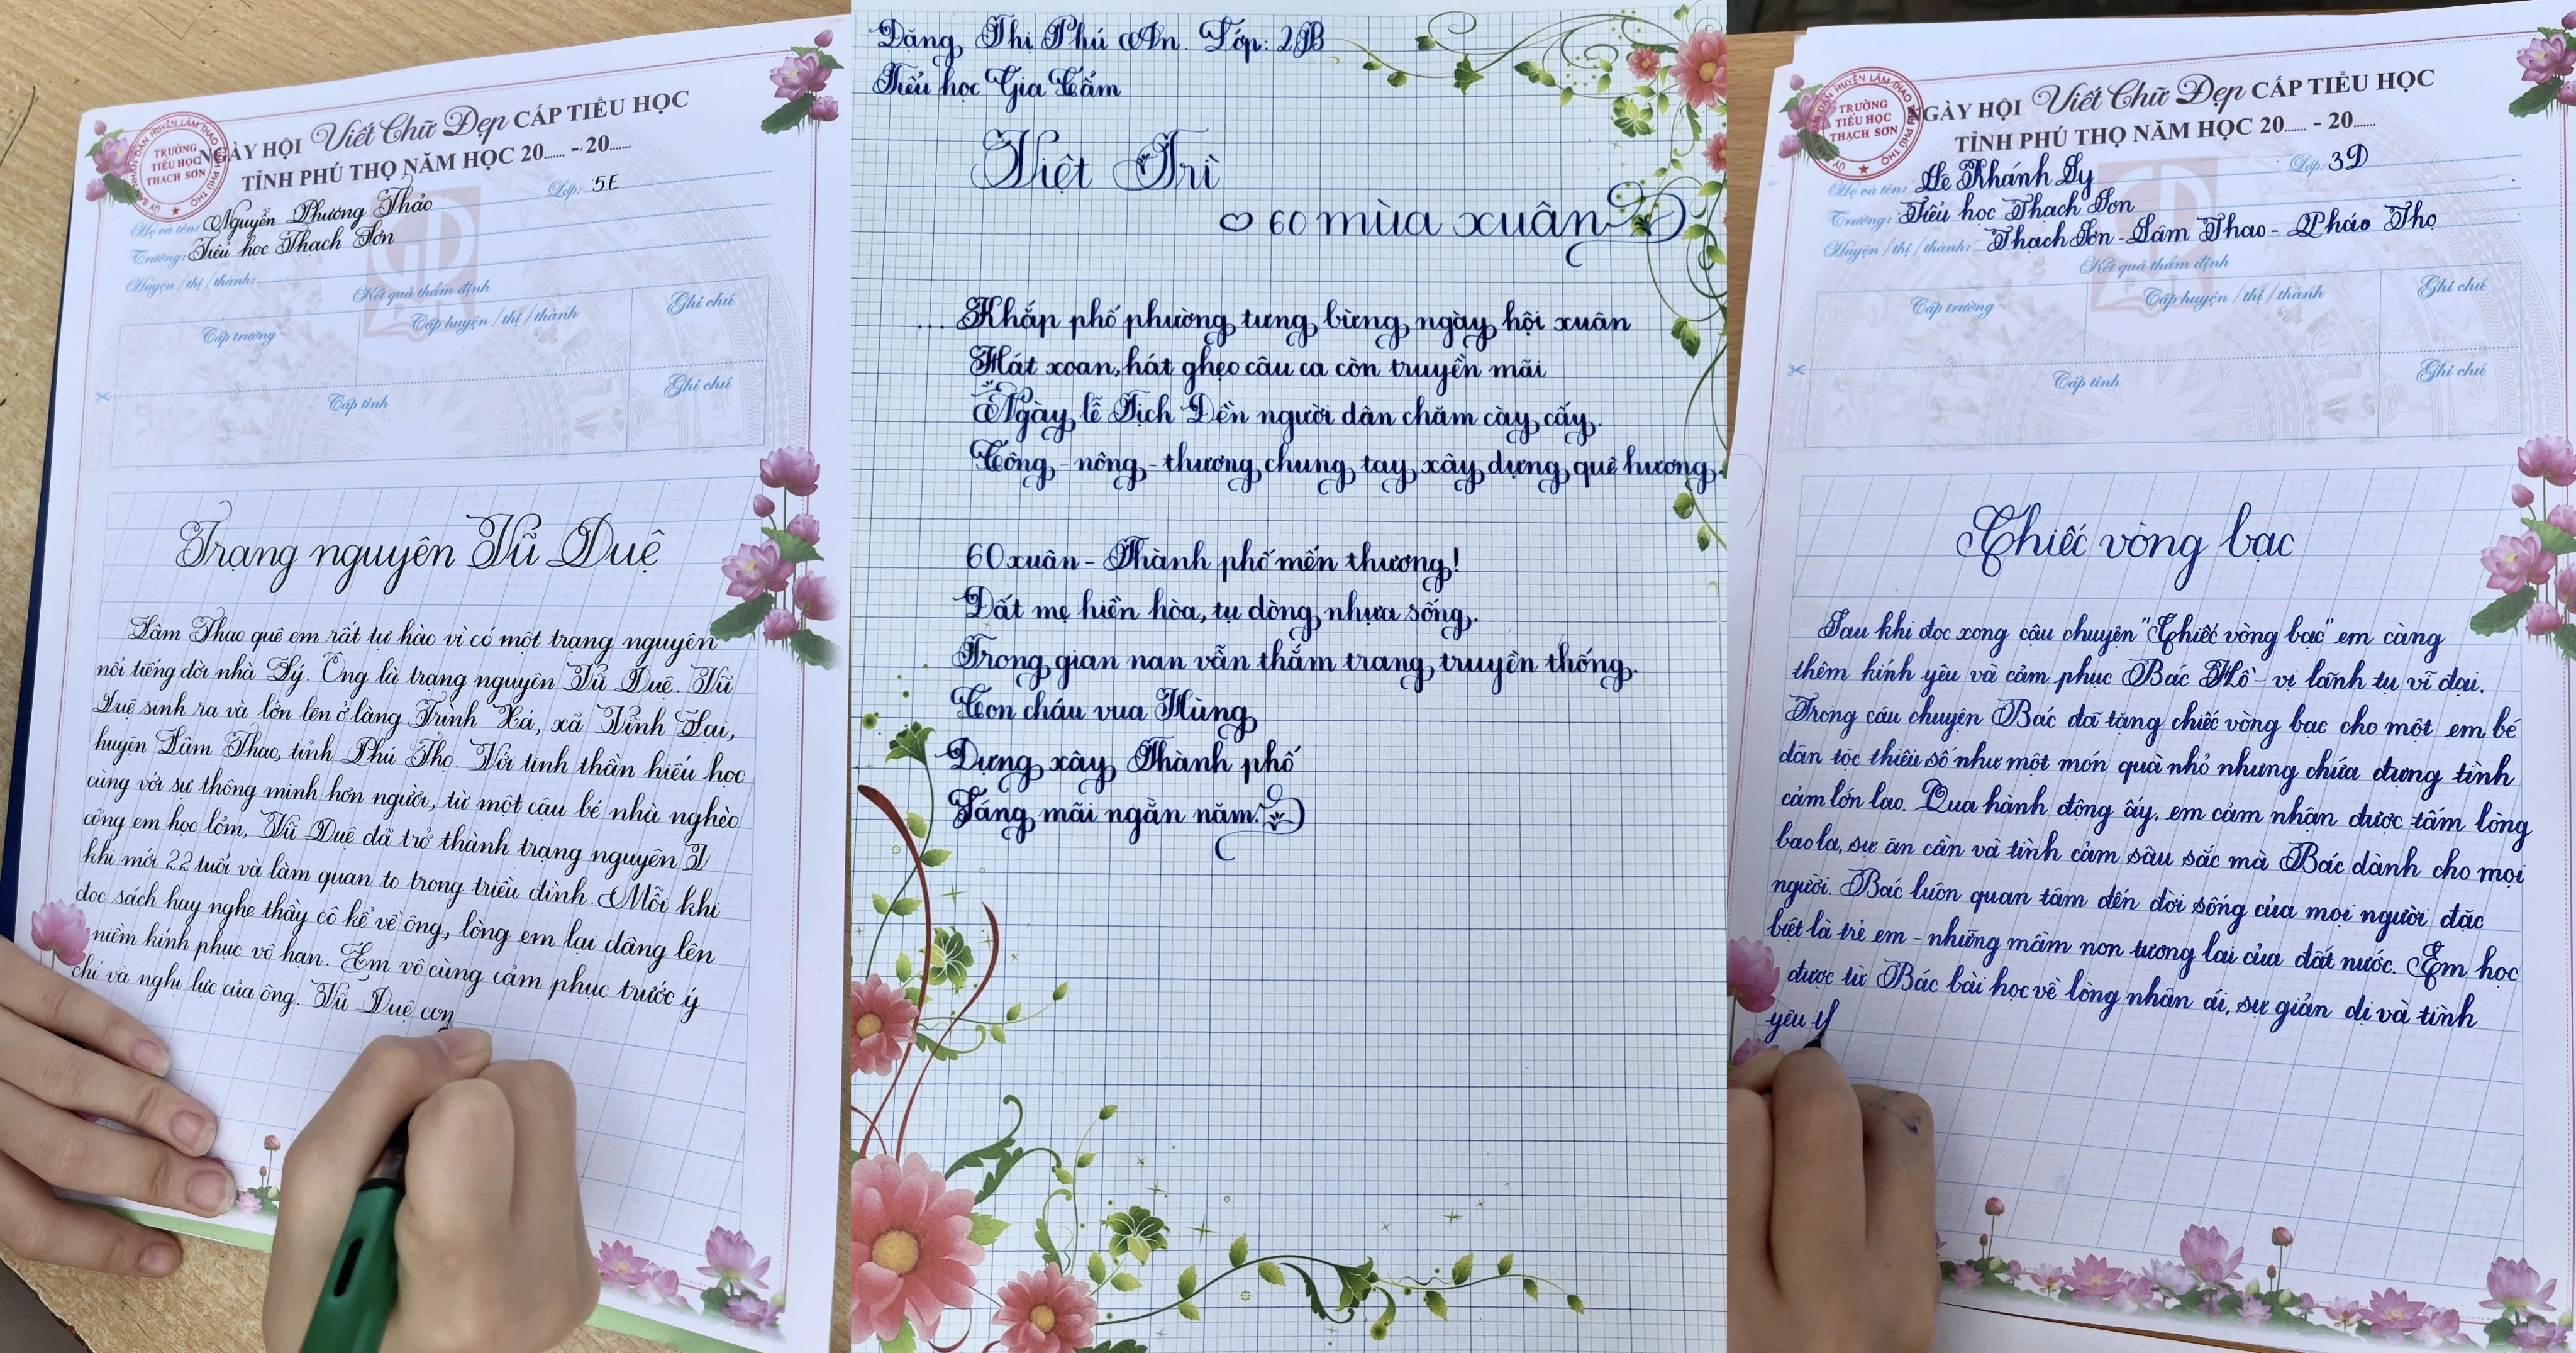 NGÀY HỘI Viết Chữ Đẹp CẤP TIỂU HỌC
TỈNH PHÚ THỌ NĂM HỌC 20...... - 20......
ỦY BAN NHÂN DÂN HUYỆN LÂM THAO
TRƯỜNG
TIỂU HỌC
THẠCH SƠN
Họ và tên: Nguyễn Phương Thảo Lớp: 5E
Trường: Tiểu học Thạch Sơn
Huyện /thị /thành:
Kết quả thẩm định
Cấp trường
Cấp huyện /thị /thành
Ghi chú
Cấp tỉnh
Ghi chú
Trạng nguyên Vũ Duệ
Lâm Thao quê em rất tự hào vì có một trạng nguyên
nổi tiếng đời nhà Lý. Ông là trạng nguyên Vũ Duệ. Vũ
Duệ sinh ra và lớn lên ở làng Trình Xá, xã Vĩnh Lại,
huyện Lâm Thao, tỉnh Phú Thọ. Với tinh thần hiếu học
cùng với sự thông minh hơn người, từ một cậu bé nhà nghèo
cõng em học lỏm, Vũ Duệ đã trở thành trạng nguyên
khi mới 22 tuổi và làm quan to trong triều đình. Mỗi khi
đọc sách huy nghe thầy cô kể về ông, lòng em lại dâng lên
niềm kính phục vô hạn. Em vô cùng cảm phục trước ý
chí và nghị lực của ông. Vũ Duệ con
Đặng Thị Phú An. Lớp: 2B
Tiểu học Gia Cẩm
Việt Trì
60 mùa xuân
... Khắp phố phường tưng bừng ngày hội xuân
Hát xoan, hát ghẹo câu ca còn truyền mãi
Ngày lễ Tịch Đền người dân chăm cày cấy.
Công - nông - thương chung tay xây dựng quê hương.
60 xuân - Thành phố mến thương!
Đất mẹ hiền hòa, tụ dòng nhựa sống.
Trong gian nan vẫn thắm trang truyền thống.
Con cháu vua Hùng
Dựng xây Thành phố
Sáng mãi ngàn năm.
NGÀY HỘI Viết Chữ Đẹp CẤP TIỂU HỌC
TỈNH PHÚ THỌ NĂM HỌC 20...... - 20......
TRƯỜNG
TIỂU HỌC
THẠCH SƠN
Họ và tên: Lê Khánh Ly Lớp: 3D
Trường: Tiểu học Thạch Sơn
Huyện /thị /thành: Thạch Sơn - Lâm Thao - Pháo Thọ
Kết quả thẩm định
Cấp trường
Cấp huyện /thị /thành
Ghi chú
Cấp tỉnh
Ghi chú
Chiếc vòng bạc
Sau khi đọc xong câu chuyện "Chiếc vòng bạc" em càng
thêm kính yêu và cảm phục Bác Hồ - vị lãnh tụ vĩ đại.
Trong câu chuyện Bác đã tặng chiếc vòng bạc cho một em bé
dân tộc thiểu số như một món quà nhỏ nhưng chứa đựng tình
cảm lớn lao. Qua hành động ấy, em cảm nhận được tấm lòng
bao la, sự ân cần và tình cảm sâu sắc mà Bác dành cho mọi
người. Bác luôn quan tâm đến đời sống của mọi người đặc
biệt là trẻ em - những mầm non tương lai của đất nước. Em học
được từ Bác bài học về lòng nhân ái, sự giản dị và tình
yêu